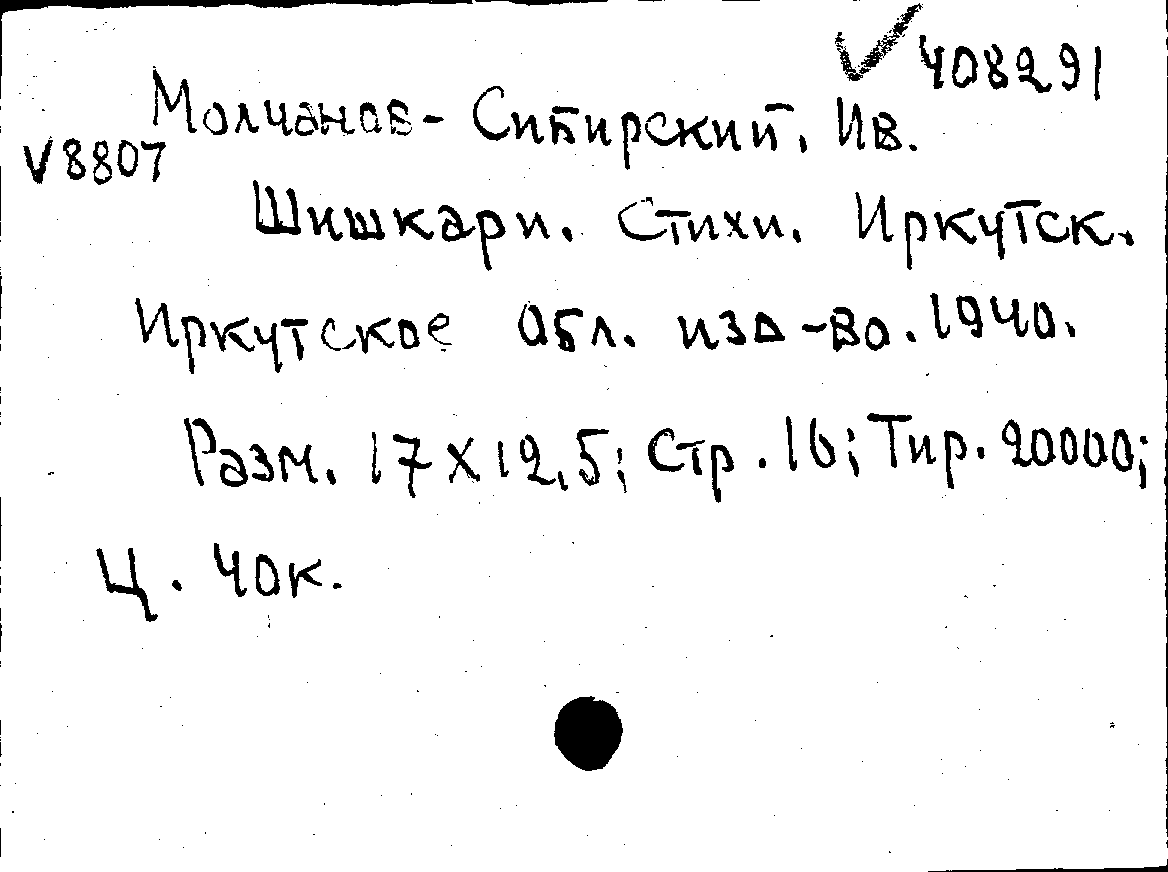 408291
Молчанов-Сибирский, Ив.
V8807
Шишкари. Стихи. Иркутск.
Иркутское Обл. изд-во. 1940.
Разм. 17x12,5; Стр. 16; Тир. 20000;
Ц. 40к.